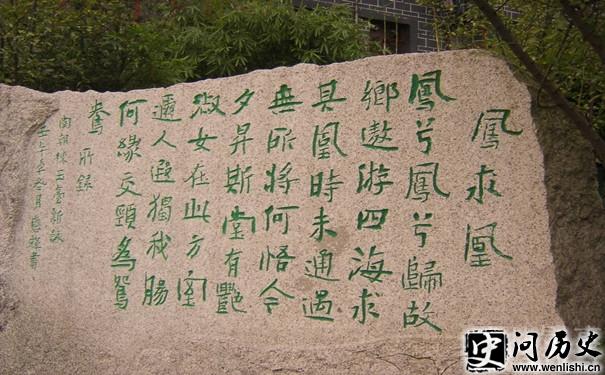 鳳求凰
鳳兮鳳兮歸故
鄉遨游四海求
其凰時未通遇
無所將何悟今
夕昇斯堂有艷
淑女在此方室
邇人遐獨我腸
何緣交頸為鴛
鴦
所錄
南朝玉臺新詠
年叁月書
史
问历史
www.wenlishi.cn